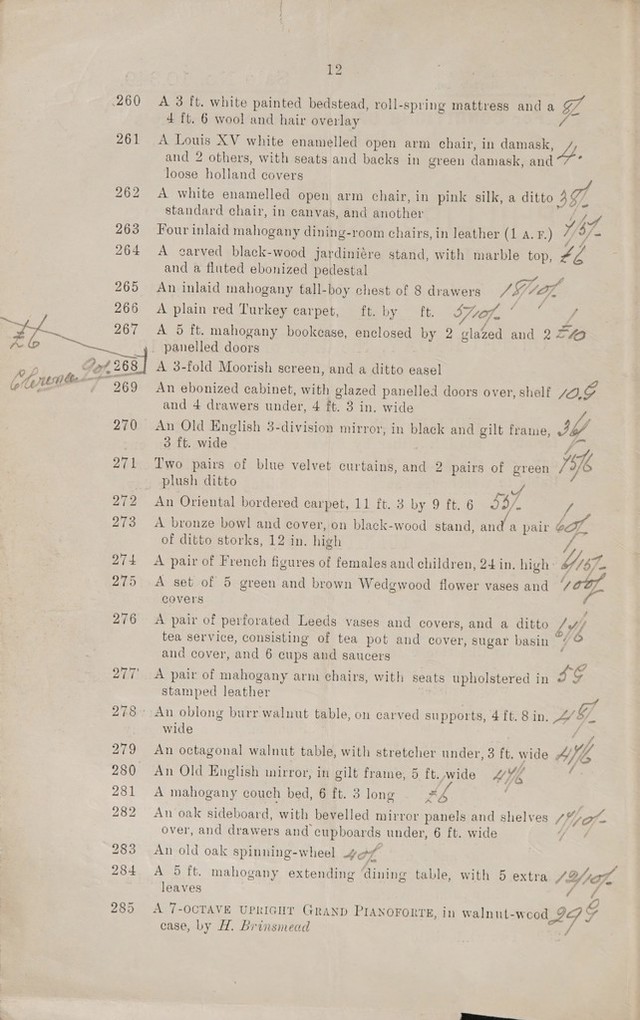 12
260 A 3 ft. white painted bedstead, roll-spring mattress and a
4 ft. 6 wool and hair overlay
261 A Louis XV white enamelled open arm chair, in damask,
and 2 others, with seats and backs in green damask, and
loose holland covers
262 A white enamelled open arm chair, in pink silk, a ditto
standard chair, in canvas, and another
263 Four inlaid mahogany dining-room chairs, in leather (1 A.F.)
264 A carved black-wood jardinière stand, with marble top,
and a fluted ebonized pedestal
265 An inlaid mahogany tall-boy chest of 8 drawers
266 A plain red Turkey carpet, ft. by ft.
267 A 5 ft. mahogany bookcase, enclosed by 2 glazed and 2
panelled doors
268 A 3-fold Moorish screen, and a ditto easel
269 An ebonized cabinet, with glazed panelled doors over, shelf
and 4 drawers under, 4 ft. 3 in. wide
270 An Old English 3-division mirror, in black and gilt frame,
3 ft. wide
271 Two pairs of blue velvet curtains, and 2 pairs of green
plush ditto
272 An Oriental bordered carpet, 11 ft. 3 by 9 ft. 6
273 A bronze bowl and cover, on black-wood stand, and a pair
of ditto storks, 12 in. high
274 A pair of French figures of females and children, 24 in. high
275 A set of 5 green and brown Wedgwood flower vases and
covers
276 A pair of perforated Leeds vases and covers, and a ditto
tea service, consisting of tea pot and cover, sugar basin
and cover, and 6 cups and saucers
277 A pair of mahogany arm chairs, with seats upholstered in
stamped leather
278 An oblong burr walnut table, on carved supports, 4 ft. 8 in.
wide
279 An octagonal walnut table, with stretcher under, 3 ft. wide
280 An Old English mirror, in gilt frame, 5 ft. wide
281 A mahogany couch bed, 6 ft. 3 long
282 An oak sideboard, with bevelled mirror panels and shelves
over, and drawers and cupboards under, 6 ft. wide
283 An old oak spinning-wheel
284 A 5 ft. mahogany extending dining table, with 5 extra
leaves
285 A 7-OCTAVE UPRIGHT GRAND PIANOFORTE, in walnut-wood
case, by H. Brinsmead